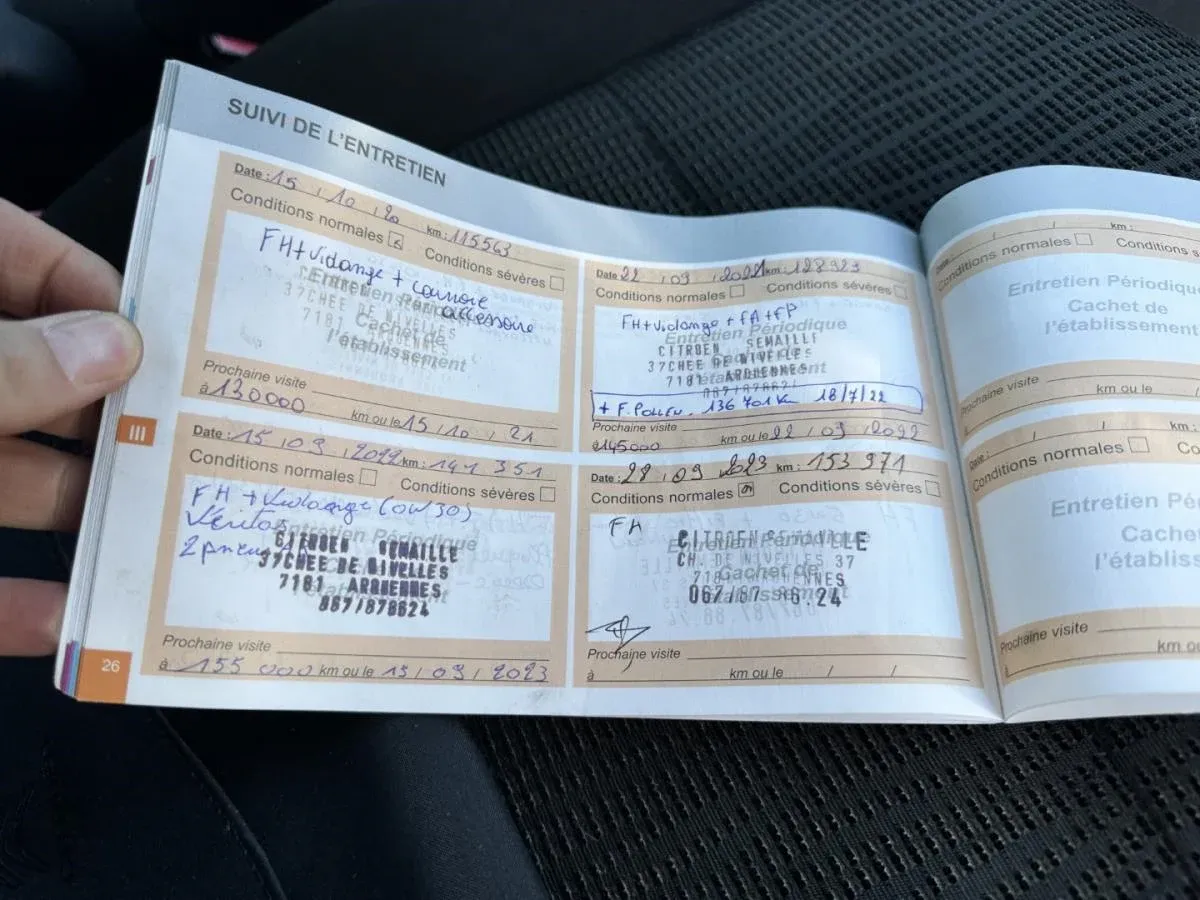 SUIVI DE L'ENTRETIEN
Date : 15 / 10 / 20 km : 115563
Conditions normales Conditions sévères
FH + Vidange + courroie
accessoire
Entretien Périodique
Cachet de
l'établissement
37CHEE DE NIVELLES
Prochaine visite
à 130000 km ou le 15 / 10 / 21
Date 22 / 09 / 2021 km : 128923
Conditions normales Conditions sévères
FH + Vidange + FA + FP
Entretien Périodique
CITROEN SEMAILLE
37CHEE DE NIVELLES
7181 ARQUENNES
067/878624
+ F. POLLEN. 136 701 Km 18/7/22
Prochaine visite
à 145000 km ou le 22 / 09 / 2022
III
Date : 15 / 09 / 2022 km : 141 351
Conditions normales Conditions sévères
FH + Vidange (0W30)
2 pneus AR
Entretien Périodique
CITROEN SEMAILLE
37CHEE DE NIVELLES
7181 ARQUENNES
067/878624
Prochaine visite
à 155 000 km ou le 15 / 09 / 2023
Date : 28 / 09 / 2023 km : 153 971
Conditions normales Conditions sévères
FH
Entretien Périodique
CITROEN SEMAILLE
CH. DE NIVELLES 37
Cachet de
7181 ARQUENNES
l'établissement
067/87 86.24
Prochaine visite
à km ou le / /
26
Date : / / km :
Conditions normales Conditions s
Entretien Périodique
Cachet de
l'établissement
Prochaine visite
à km ou le /
Date : / / km :
Conditions normales Co
Entretien Pé
Cache
l'établis
Prochaine visite
à km ou